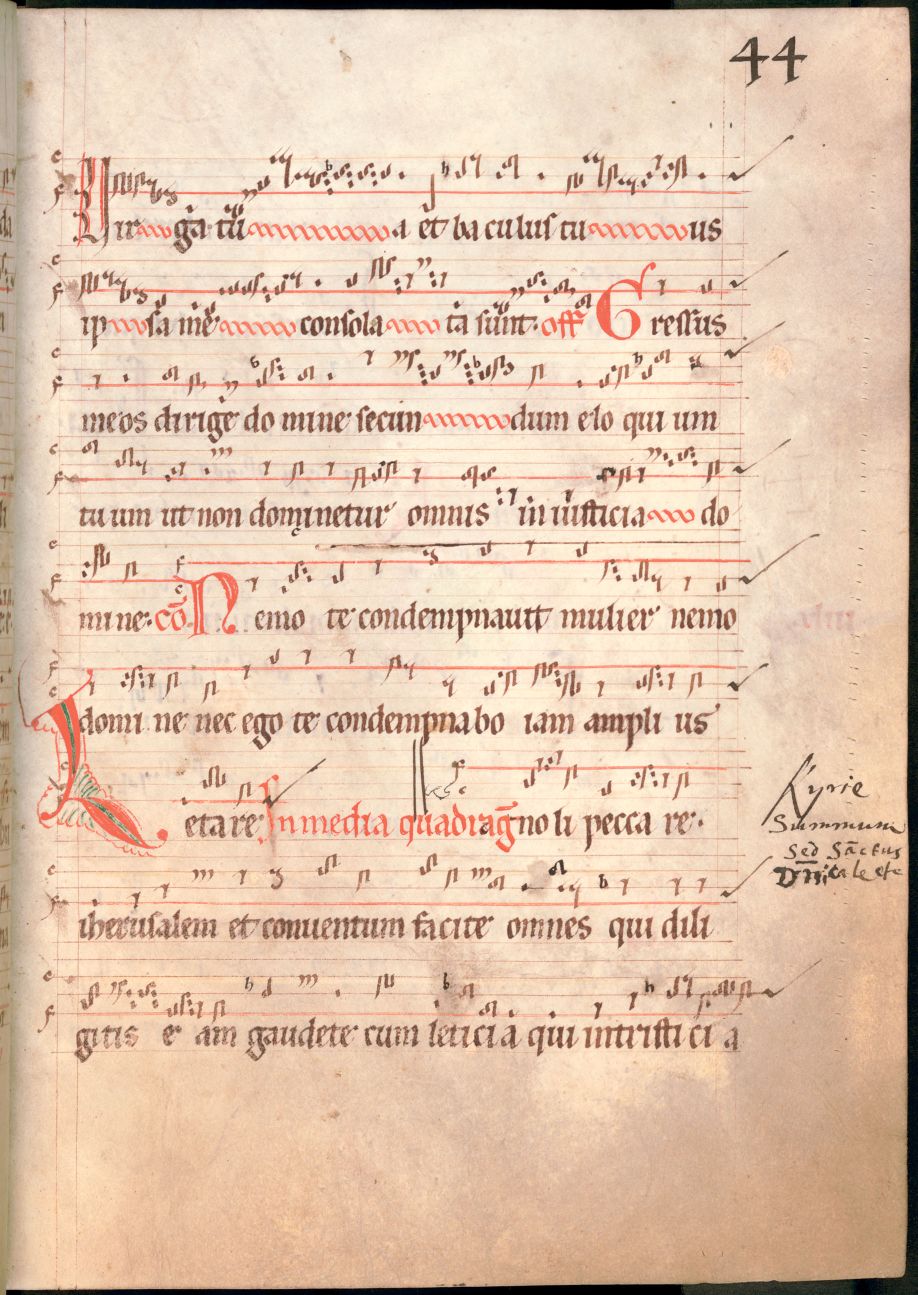 44
Uirga tu a et baculus tu us
ip sa me consola ta sunt. off Gressus
meos dirige domine secun dum eloquium
tuum ut non dominetur omnis iniusticia do
mine. co Nemo te condempnauit mulier nemo
domine nec ego te condempnabo iam amplius
peccare. In media quadrag Letare
iherusalem et conuentum facite omnes qui dili
gitis eam gaudete cum leticia qui intristicia
Kyrie
Summum
Sed Sāctus